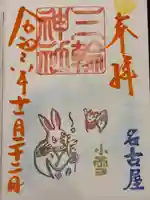 奉拝
名古屋
三輪
神社
小雪
令和 年十一月二十二日